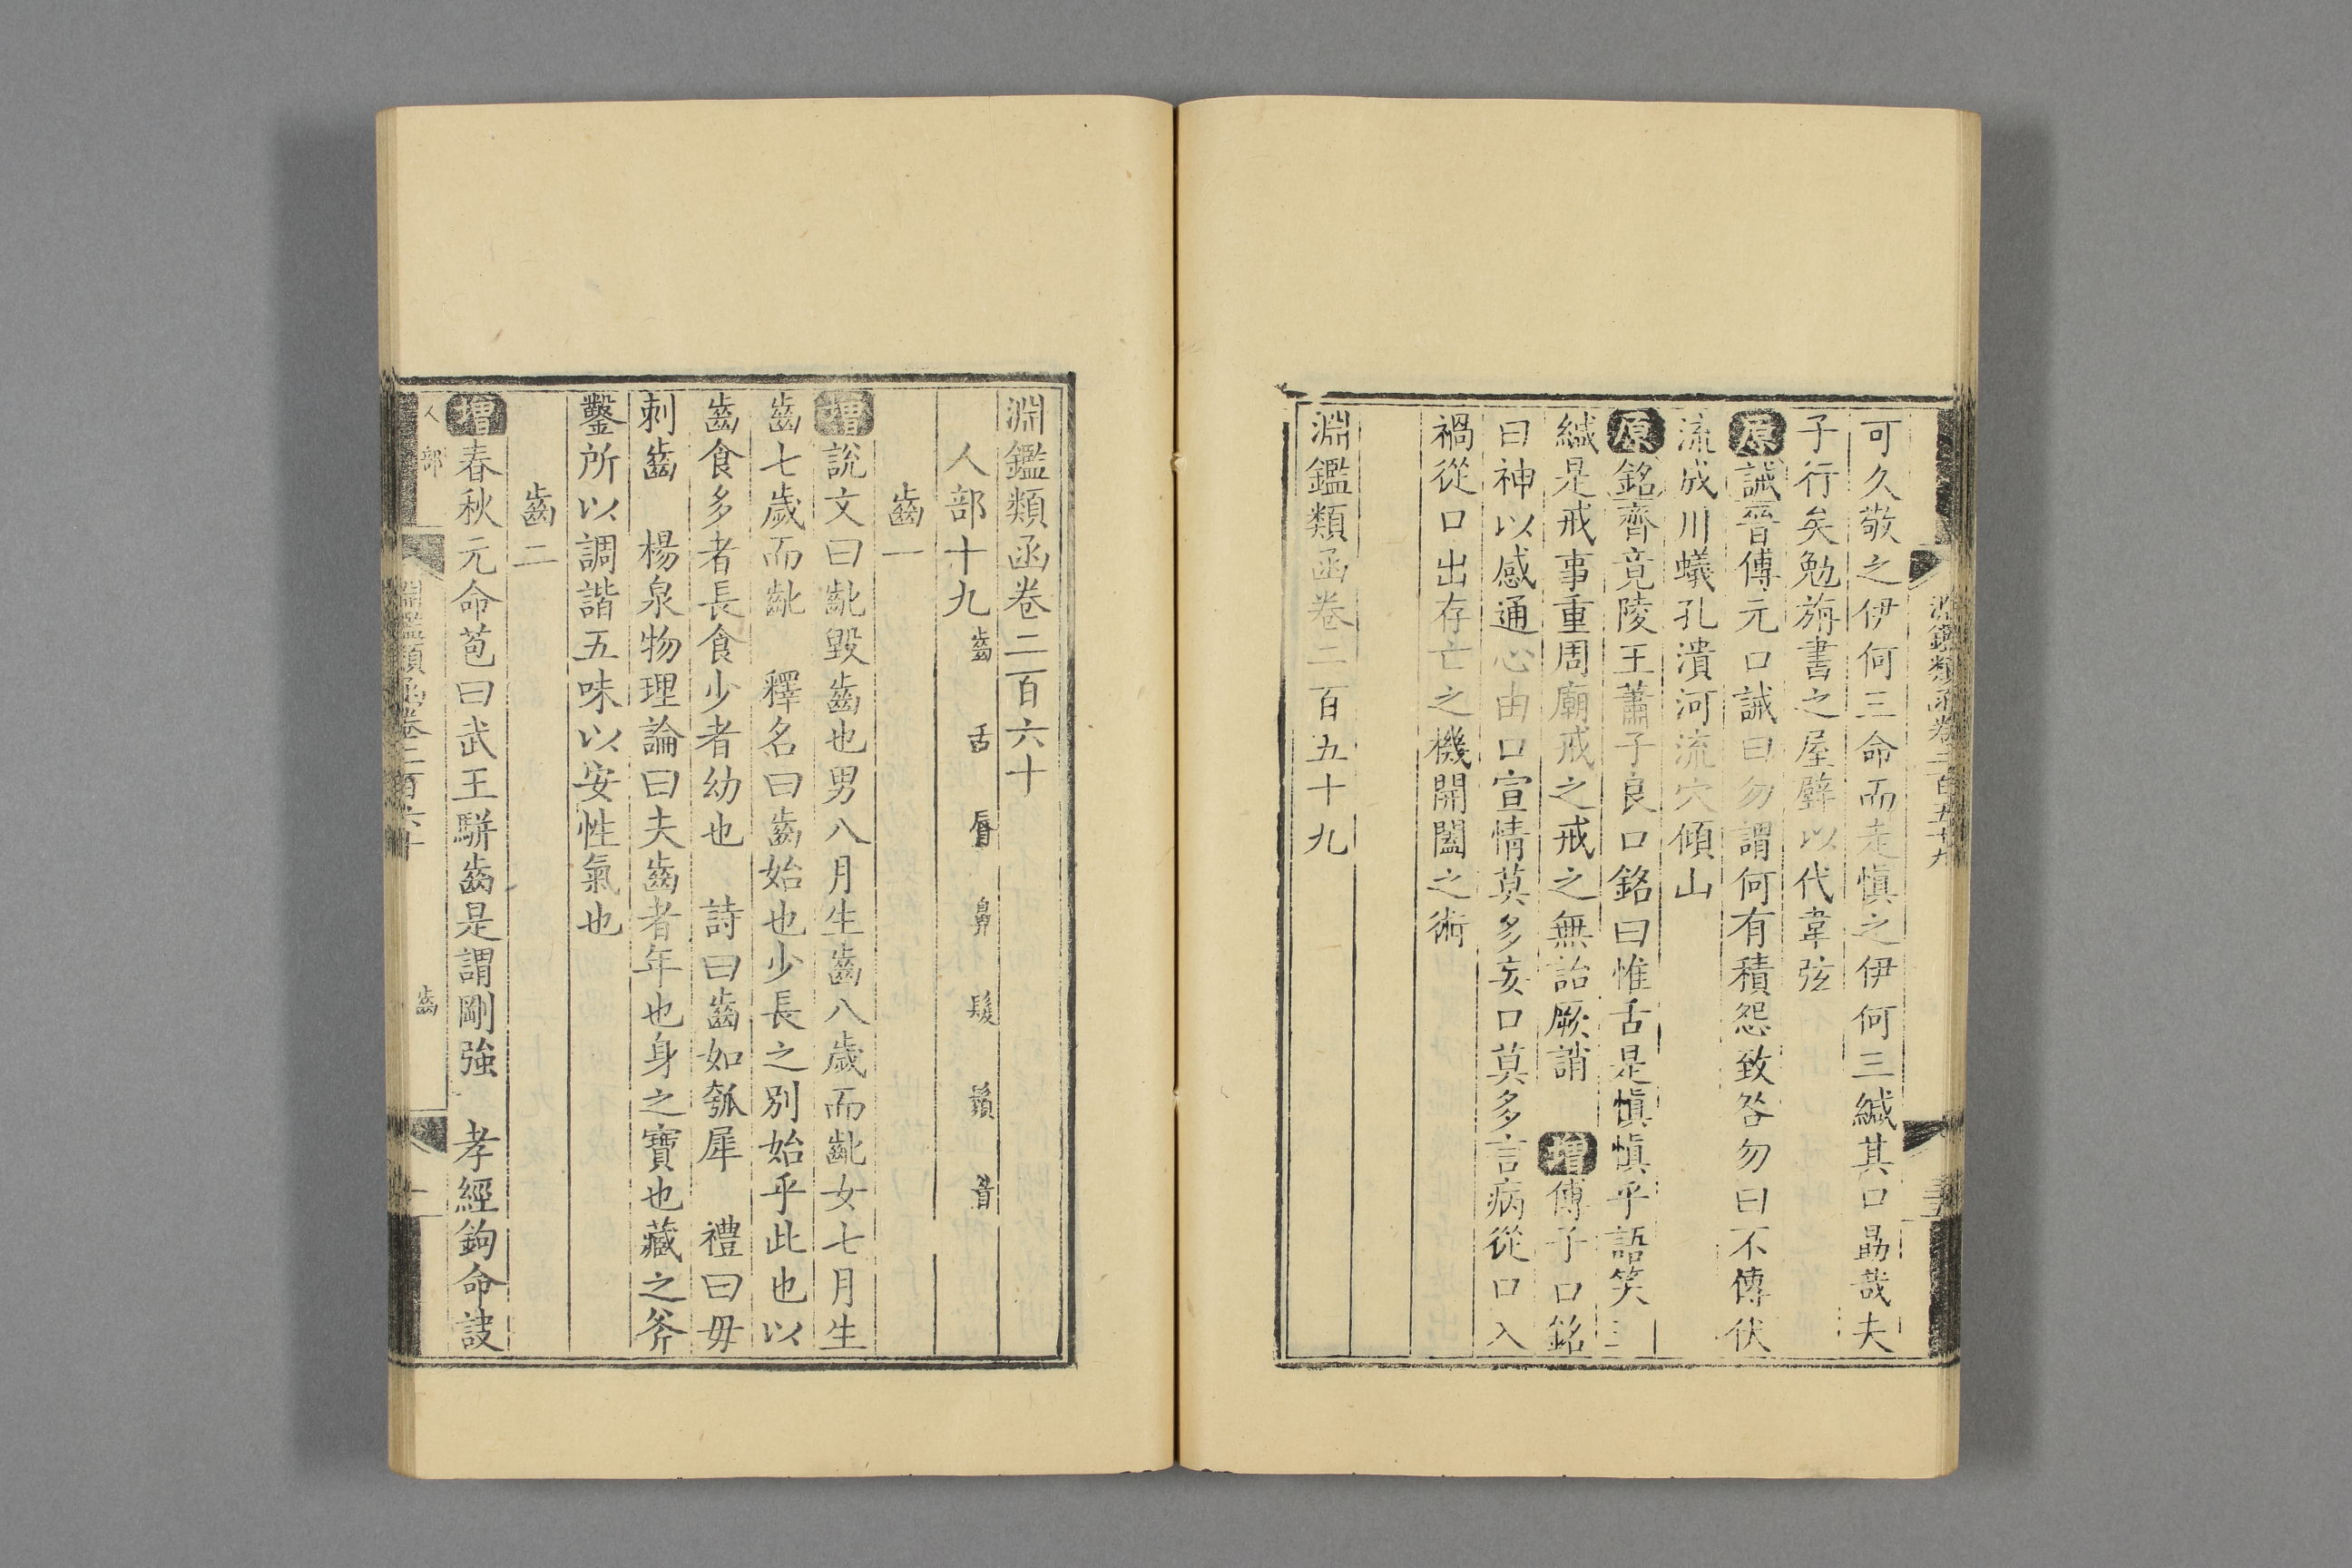 淵鑑類函卷二百五十九
可久敬之伊何三命而走慎之伊何三緘其口勗哉夫
子行矣勉旃書之屋壁以代韋弦
原誡晉傅元口誡曰勿謂何有積怨致咎勿曰不傳伏
流成川蟻孔潰河流穴傾山
原銘齊竟陵王蕭子良口銘曰惟舌是慎慎乎語笑三
緘是戒事重周廟戒之戒之無詒厥誚　增傅子口銘
曰神以感通心由口宣情莫多妄口莫多言病從口入
禍從口出存亡之機開闔之術
淵鑑類函卷二百五十九
淵鑑類函卷二百六十
人部十九齒　舌　脣　鼻　髮　鬚　眉
齒一
增說文曰齔毀齒也男八月生齒八歲而齔女七月生
齒七歲而齔　釋名曰齒始也少長之別始乎此也以
齒食多者長食少者幼也　詩曰齒如瓠犀　禮曰毋
刺齒　楊泉物理論曰夫齒者年也身之寶也藏之斧
鑿所以調諧五味以安性氣也
齒二
增春秋元命苞曰武王駢齒是謂剛強　孝經鉤命訣
人部
淵鑑類函卷二百六十
齒
一